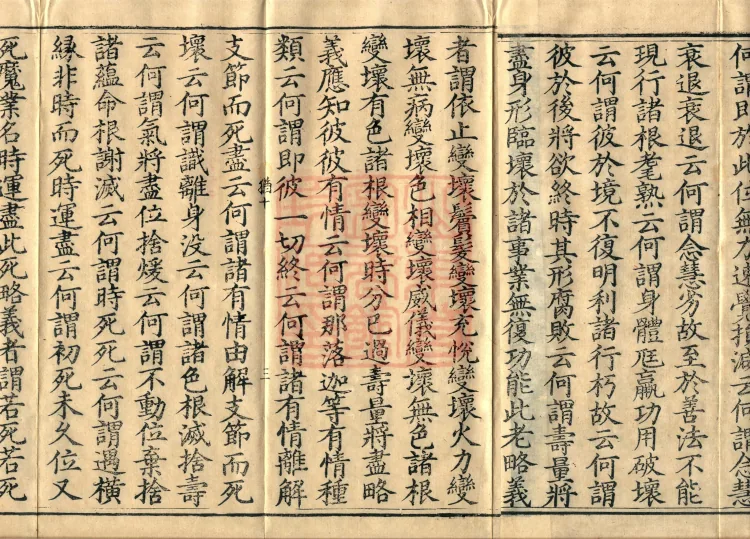 何謂即於此位無力損減云何謂念慧
衰退衰退云何謂念慧劣故至於善法不能
現行諸根耄熟云何謂身體尫羸功用破壞
云何謂彼於境不復明利諸行朽故云何謂
彼於後將欲終時其形腐敗云何謂壽量將
盡身形臨壞於諸事業無復功能此老略義
者謂依止變壞鬚髮變壞充悅變壞火力變
壞無病變壞色相變壞威儀變壞無色諸根
變壞有色諸根變壞時分已過壽量將盡略
義應知彼彼有情云何謂那落迦等有情種
類云何謂即彼一切終云何謂諸有情離解
猶十 三
支節而死盡云何謂諸有情由解支節而死
壞云何謂識離身沒云何謂諸色根滅捨壽
云何謂氣將盡位捨煖云何謂不動位棄捨
諸蘊命根謝滅云何謂時死死云何謂遇橫
緣非時而死時運盡云何謂初死未久位又
死魔業名時運盡此死略義者謂若死若死